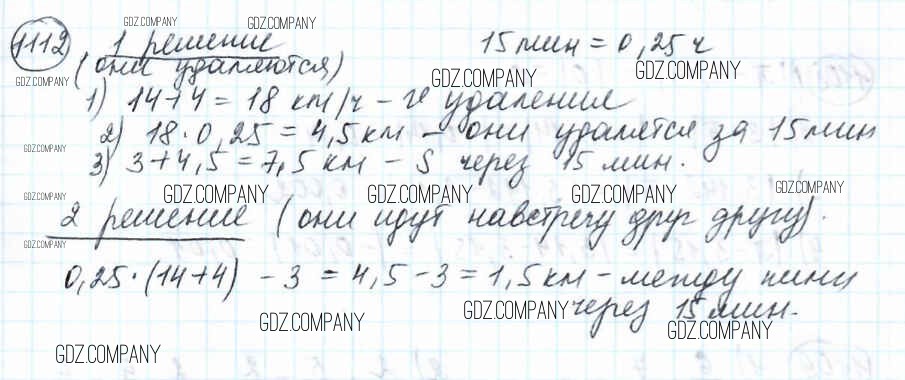 GDZ.COMPANY GDZ.COMPANY
1112 1 решение 15 мин = 0,25 ч
(они удаляются) GDZ.COMPANY GDZ.COMPANY
GDZ.COMPANY
1) 14+4 = 18 км/ч – υ удаления
2) 18·0,25 = 4,5 км – они удалятся за 15 мин
GDZ.COMPANY
3) 3+4,5 = 7,5 км – S через 15 мин.
GDZ.COMPANY GDZ.COMPANY GDZ.COMPANY GDZ.COMPANY
GDZ.COMPANY
2 решение (они идут навстречу друг другу).
GDZ.COMPANY
0,25·(14+4) – 3 = 4,5 – 3 = 1,5 км – между ними
через 15 мин.
GDZ.COMPANY GDZ.COMPANY GDZ.COMPANY
GDZ.COMPANY